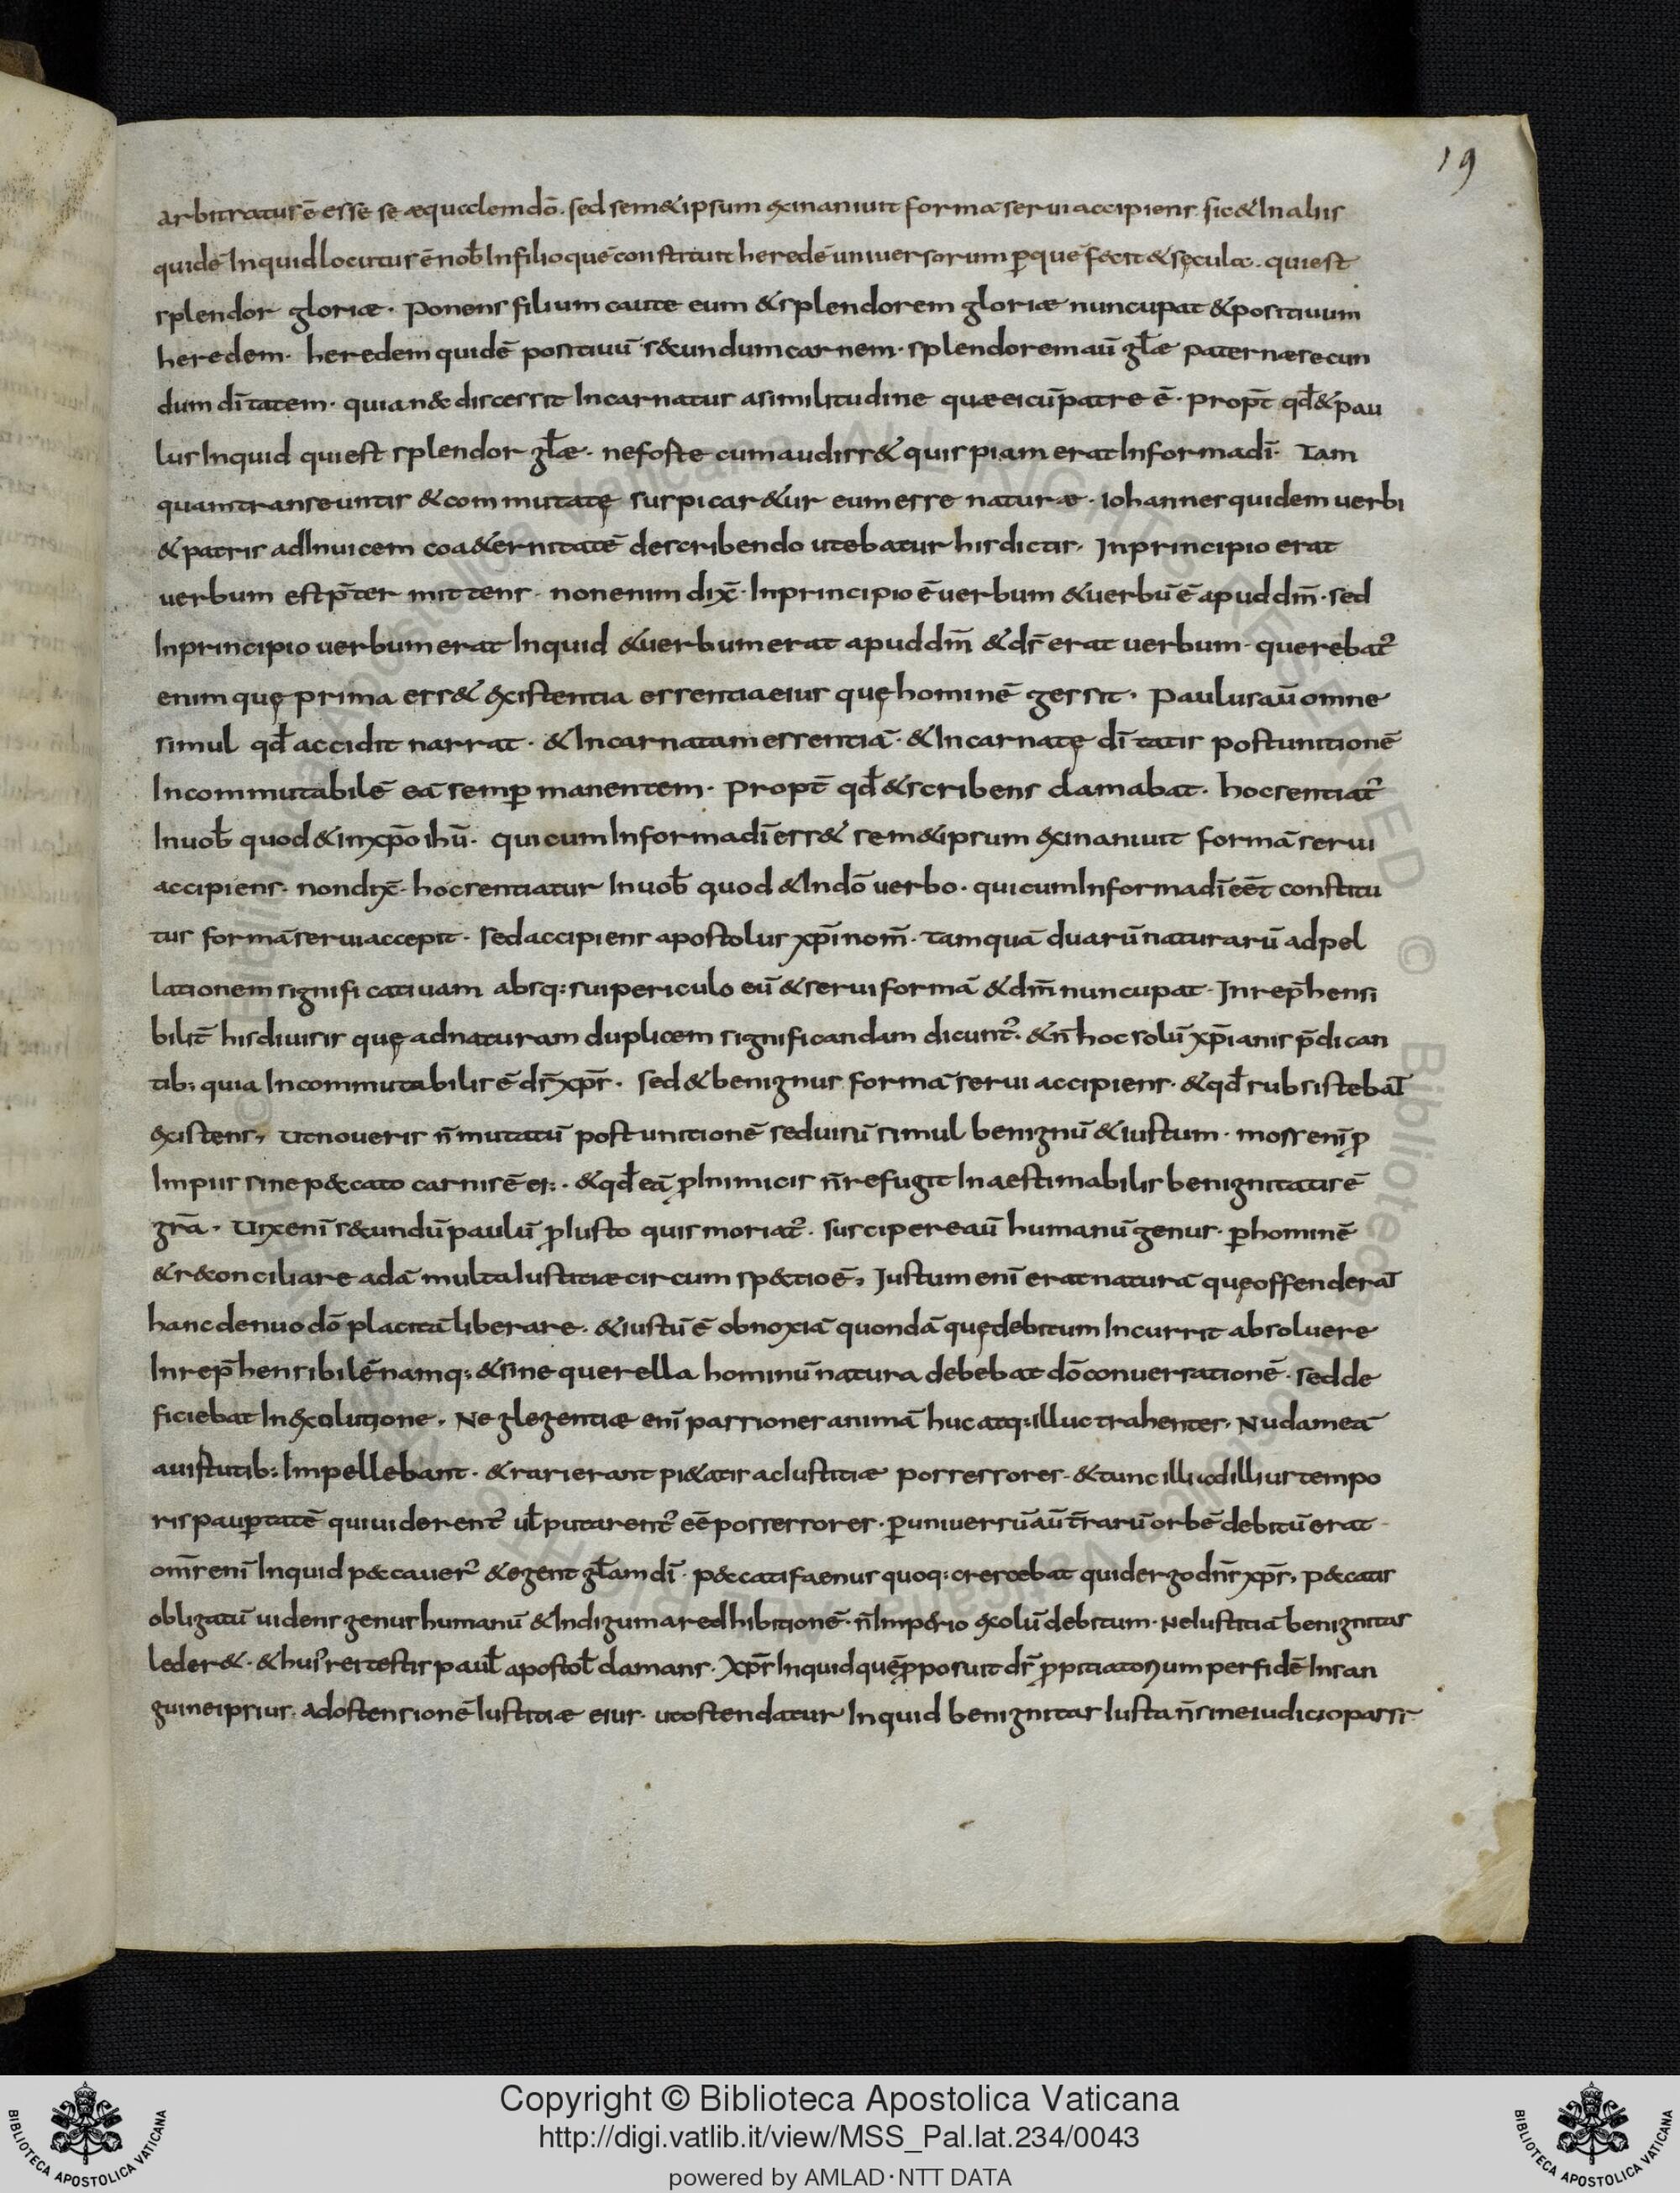 19
arbitratus ē esse se æqualem dō. sed sem&ipsum exinaniuit formā serui accipiens. sic & In aliis
quidē Inquid locutus ē nob̄ In filio quē constituit heredē uniuersorum ꝑ quē fecit & sęcula. qui est
splendor gloriæ. Ponens filium caute eum & splendorem gloriæ nuncupat & positiuum
heredem. heredem quidē positiuū s&cundum carnem. splendorem aū gl̄æ paternæ secun
dum dī tatem. quia n& discessit Incarnatus a similitudine quæ ei cū patre ē. propt̄ qd̄ & pau
lus Inquid qui est splendor gl̄æ. ne foste cum audiss& quispiam erat In forma dī. Tam
quam transeuntis & commutatę suspicar&ur eum esse naturæ. Iohannes quidem uerbi
& patris ad Inuicem coa&ernitatē describendo utebatur his dictis. In principio erat
uerbum est p̄ter mittens. non enim dix̄. In principio ē uerbum & uerbū ē apud dm̄. sed
In principio uerbum erat Inquid & uerbum erat apud dm̄ & ds̄ erat uerbum. querebat᷒
enim quę prima ess& existentia essentia eius quę hominē gessit. Paulus aū omne
simul qd̄ accidit narrat. & Incarnatam essentiā. & Incarnatę dī tatis post unitionē
Incommutabilē eā semꝑ manentem. Propt̄ qd̄ & scribens clamabat. hoc sentiat᷒
In uob̄ quod & in xp̄o ihū. qui cum In forma dī ess& sem&ipsum exinaniuit formā serui
accipiens. non dix̄. hoc sentiatur In uob̄ quod & In dō uerbo. qui cum In forma dī eēt constitu
tus formā serui accepit. sed accipiens apostolus xp̄i nom̄. tamquā duarū naturarū adpel
lationem significatiuam absq: sui periculo eū & serui formā & dm̄ nuncupat. Inrep̄hensi
bilit̄ his diuisis quę ad naturam duplicem significandam dicunt᷒. & n̄ hoc solū xp̄ianis p̄dican
tib: quia Incommutabilis ē ds̄ xp̄s. sed & benignus formā serui accipiens. & qd̄ subsistebat̄
existens, ut noueris n̄ mutatū post unitionē sed uisū simul benignū & iustum. moss enī ꝓ
Impiis sine p&cato carnis ē ei:. & qd̄ eā ꝓ Inimicis n̄ refugit Inaestimabilis benignitatis ē
grā. Vix enī s&undū paulū ꝓ Iusto quis moriat᷒. suscipere aū humanū genus. ꝑ hominē
& r&onciliare adā multa Iustitiæ circumsp&tio ē, Iustum enī erat naturā quę offenderat̄
hanc denuo dō placitā liberare. & iustū ē obnoxiā quondā quę debitum Incurrit absoluere
Inrep̄hensibilē namq: & sine querella hominū natura debebat dō conuersationē. sed de
ficiebat In exolutione. Neglegentiæ enī passiones animā huc atq: illuc trahentes. Nudam eā
a uistutib: Impellebant. & rari erant pi&atis ac Iustitiæ possessores. & tunc illi ad illius tempo
ris pauꝑtatē qui uiderent᷒ ul̄ putarent᷒ eē possessores. ꝑ uniuersū aū t̄rarū orbē debitū erat.
om̄s enī Inquid p&cauer᷒ & egent gl̄am dī. p&cati faenus quoq: crescebat quid ergo dn̄s xp̄s, p&catis
obligatū uidens genus humanū & Indigum a redhibitionē. n̄ Imperio exolū debitum. Ne Iustitiā benignitas
leder&. & hui᷒ rei testis paul̄ apostol̄ clamans. Xp̄s Inquid quē ꝓposuit ds̄ ꝓpitiatorium per fidē In san
guine ipsius. ad ostensionē Iustitiæ eius. ut ostendatur Inquid benignitas Iusta n̄ sine iudicio passi
Copyright © Biblioteca Apostolica Vaticana
http://digi.vatlib.it/view/MSS_Pal.lat.234/0043
powered by AMLAD·NTT DATA